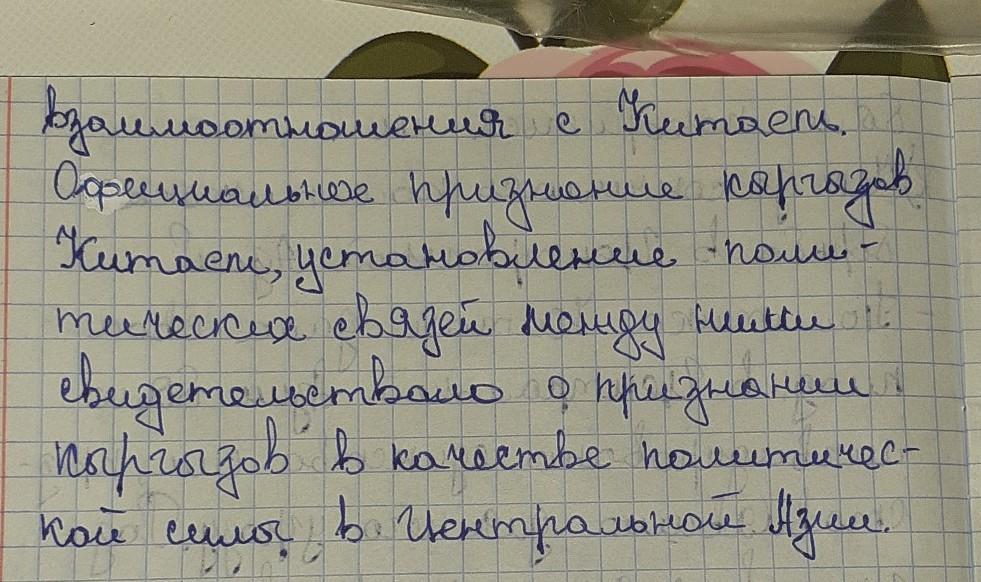 взаимоотношения с Китаем.
Официальное признание кыргызов
Китаем, установление поли-
тических связей между ними
свидетельствало о признании
кыргызов в качестве политичес-
кой силы в Центральной Азии.